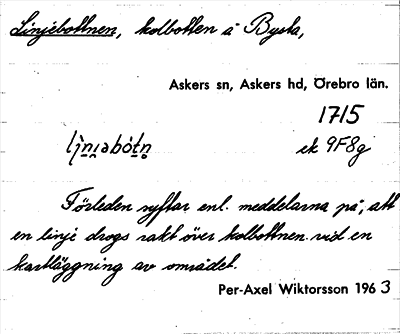 Linjebottnen, kolbotten å Bysta,
Askers sn, Askers hd, Örebro län.
1715
lìn̯i̯əbót̯n̥ ek 9F8g
Förleden syftar enl. meddelarna på, att
en linje drogs rakt över kolbottnen vid en
kartläggning av området.
Per-Axel Wiktorsson 1963